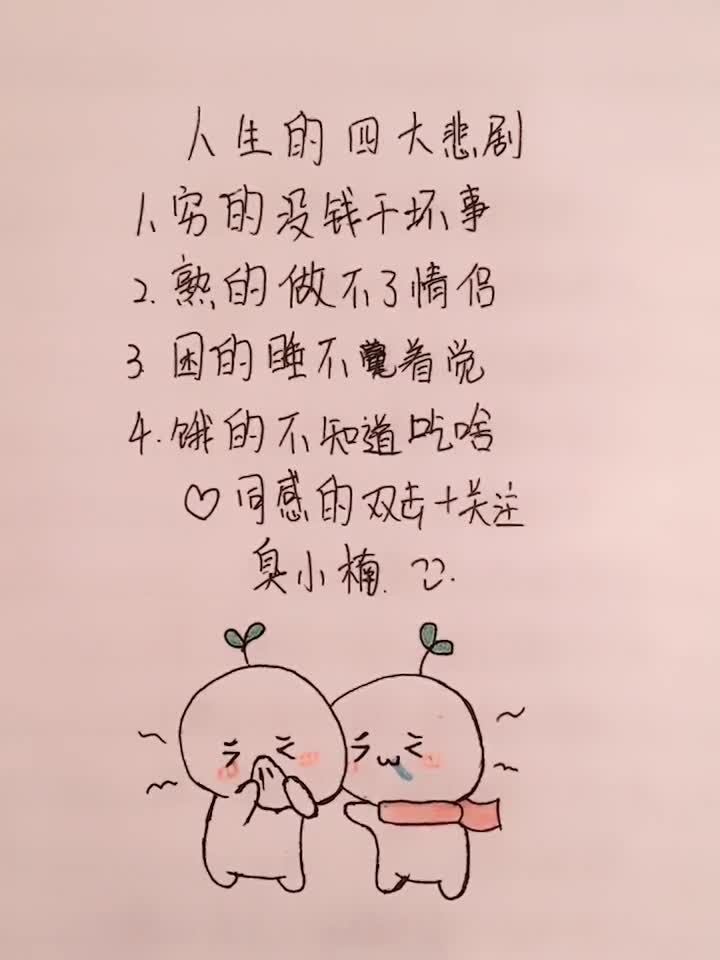 人生的四大悲剧
1、穷的没钱干坏事
2.熟的做不了情侣
3.困的睡不着觉
4.饿的不知道吃啥
♡同感的双击+关注
臭小楠.